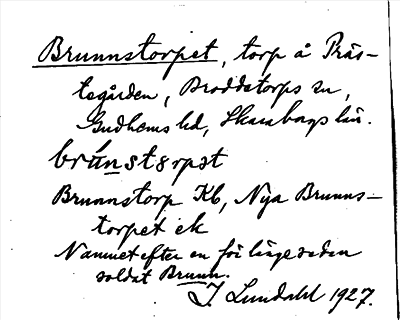 Brunnstorpet, torp å Präs-
tegården, Broddetorps sn,
Gudhems hd, Skaraborgs län.
brúnstɛrpət
Brunnstorp Kb, Nya Brunns-
torpet ek
Namnet efter en för länge sedan
soldat Brunn.
J. Lundahl 1927.